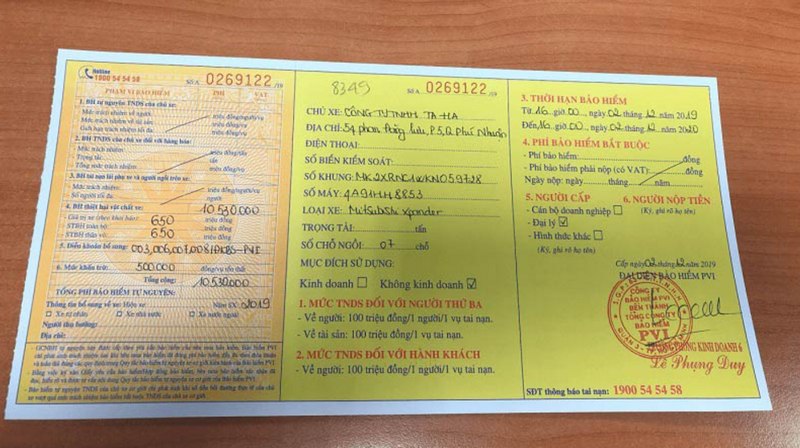 Hotline
1900 54 54 58
Số A 0269122 /19
PHẠM VI BẢO HIỂM PHÍ VAT
1. BH tự nguyện TNDS của chủ xe:
Mức trách nhiệm về người: triệu đồng/người/vụ
Mức trách nhiệm về tài sản: triệu đồng/vụ
Giới hạn trách nhiệm tối đa: triệu đồng/vụ
2. BH TNDS của chủ xe đối với hàng hóa:
Mức trách nhiệm: triệu đồng/tấn
Trọng tải: tấn
Tổng mức trách nhiệm: triệu đồng/vụ
3. BH tai nạn lái phụ xe và người ngồi trên xe:
Mức trách nhiệm: triệu đồng/người/vụ
Số người tối đa: người
4. BH thiệt hại vật chất xe: 10.530.000
Giá trị xe (theo khai báo): 650 triệu đồng
STBH toàn bộ: 650 triệu đồng
STBH thân vỏ: triệu đồng
5. Điều khoản bổ sung: 003,006,007,008/ĐKBS-PVI
6. Mức khấu trừ: 500.000 đồng/vụ tổn thất
Tổng cộng: 10.530.000
TỔNG PHÍ BẢO HIỂM TỰ NGUYỆN:
Thông tin bổ sung về xe: Hiệu xe: Năm SX: 2019
Xe tư nhân Xe nhà nước Xe nước ngoài
Người thụ hưởng:
Địa chỉ:
8349
Số A 0269122 /19
CHỦ XE: CÔNG TY TNHH TA HA
ĐỊA CHỈ: 54 Phan Đăng Lưu, P.5, Q Phú Nhuận
ĐIỆN THOẠI:
SỐ BIỂN KIỂM SOÁT:
SỐ KHUNG: MK2XRNC1WKN059728
SỐ MÁY: 4A91HH8853
LOẠI XE: Mitsubishi xpander
TRỌNG TẢI: tấn
SỐ CHỖ NGỒI: 07 chỗ
MỤC ĐÍCH SỬ DỤNG:
Kinh doanh Không kinh doanh
1. MỨC TNDS ĐỐI VỚI NGƯỜI THỨ BA
- Về người: 100 triệu đồng/1 người/1 vụ tai nạn.
- Về tài sản: 100 triệu đồng/1 vụ tai nạn.
2. MỨC TNDS ĐỐI VỚI HÀNH KHÁCH
- Về người: 100 triệu đồng/1 người/1 vụ tai nạn.
3. THỜI HẠN BẢO HIỂM
Từ 16 giờ 00, ngày 02 tháng 12 năm 2019
Đến 16 giờ 00, ngày 02 tháng 12 năm 2020
4. PHÍ BẢO HIỂM BẮT BUỘC
- Phí bảo hiểm: đồng
- Phí bảo hiểm phải nộp (có VAT): đồng
Ngày nộp: ngày tháng năm
5. NGƯỜI CẤP 6. NGƯỜI NỘP TIỀN
- Cán bộ doanh nghiệp (Ký, ghi rõ họ tên)
- Đại lý
- Hình thức khác
(Ký, ghi rõ họ tên)
Cấp ngày 02 tháng 12 năm 2019
ĐẠI DIỆN BẢO HIỂM PVI
CÔNG TY
BẢO HIỂM PVI
BẾN THÀNH
TỔNG CÔNG TY
BẢO HIỂM
PVI
PHÒNG KINH DOANH 6
Lê Phụng Duy
SĐT thông báo tai nạn: 1900 54 54 58